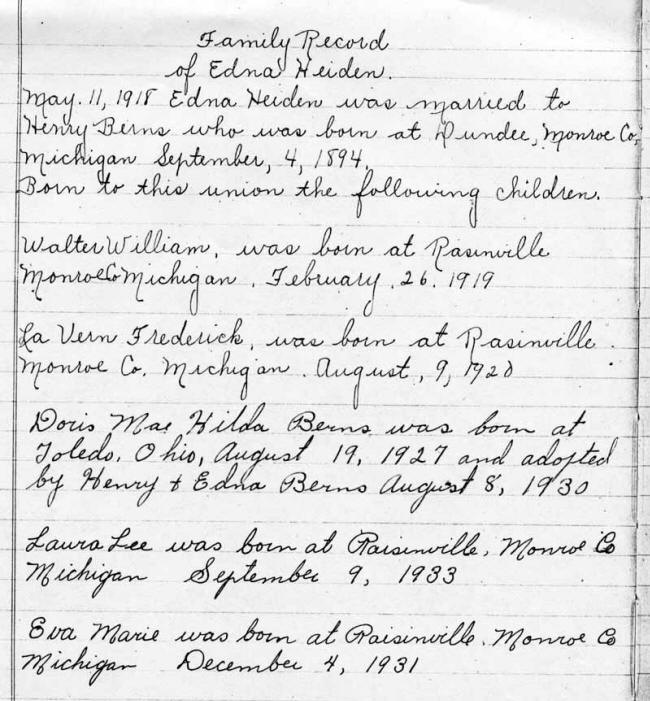 Family Record
of Edna Heiden.
May. 11, 1918 Edna Heiden was married to
Henry Berns who was born at Dundee, Monroe Co,
Michigan September, 4, 1894.
Born to this union the following children.
Walter William, was born at Rasinville
Monroe Co Michigan. February. 26. 1919
La Vern Frederick, was born at Rasinville.
Monroe Co. Michigan. August, 9, 1920
Doris Mae Hilda Berns was born at
Toledo, Ohio, August 19, 1927 and adopted
by Henry & Edna Berns August 8, 1930
Laura Lee was born at Raisinville, Monroe Co
Michigan September 9, 1933
Eva Marie was born at Raisinville. Monroe Co
Michigan December 4, 1931